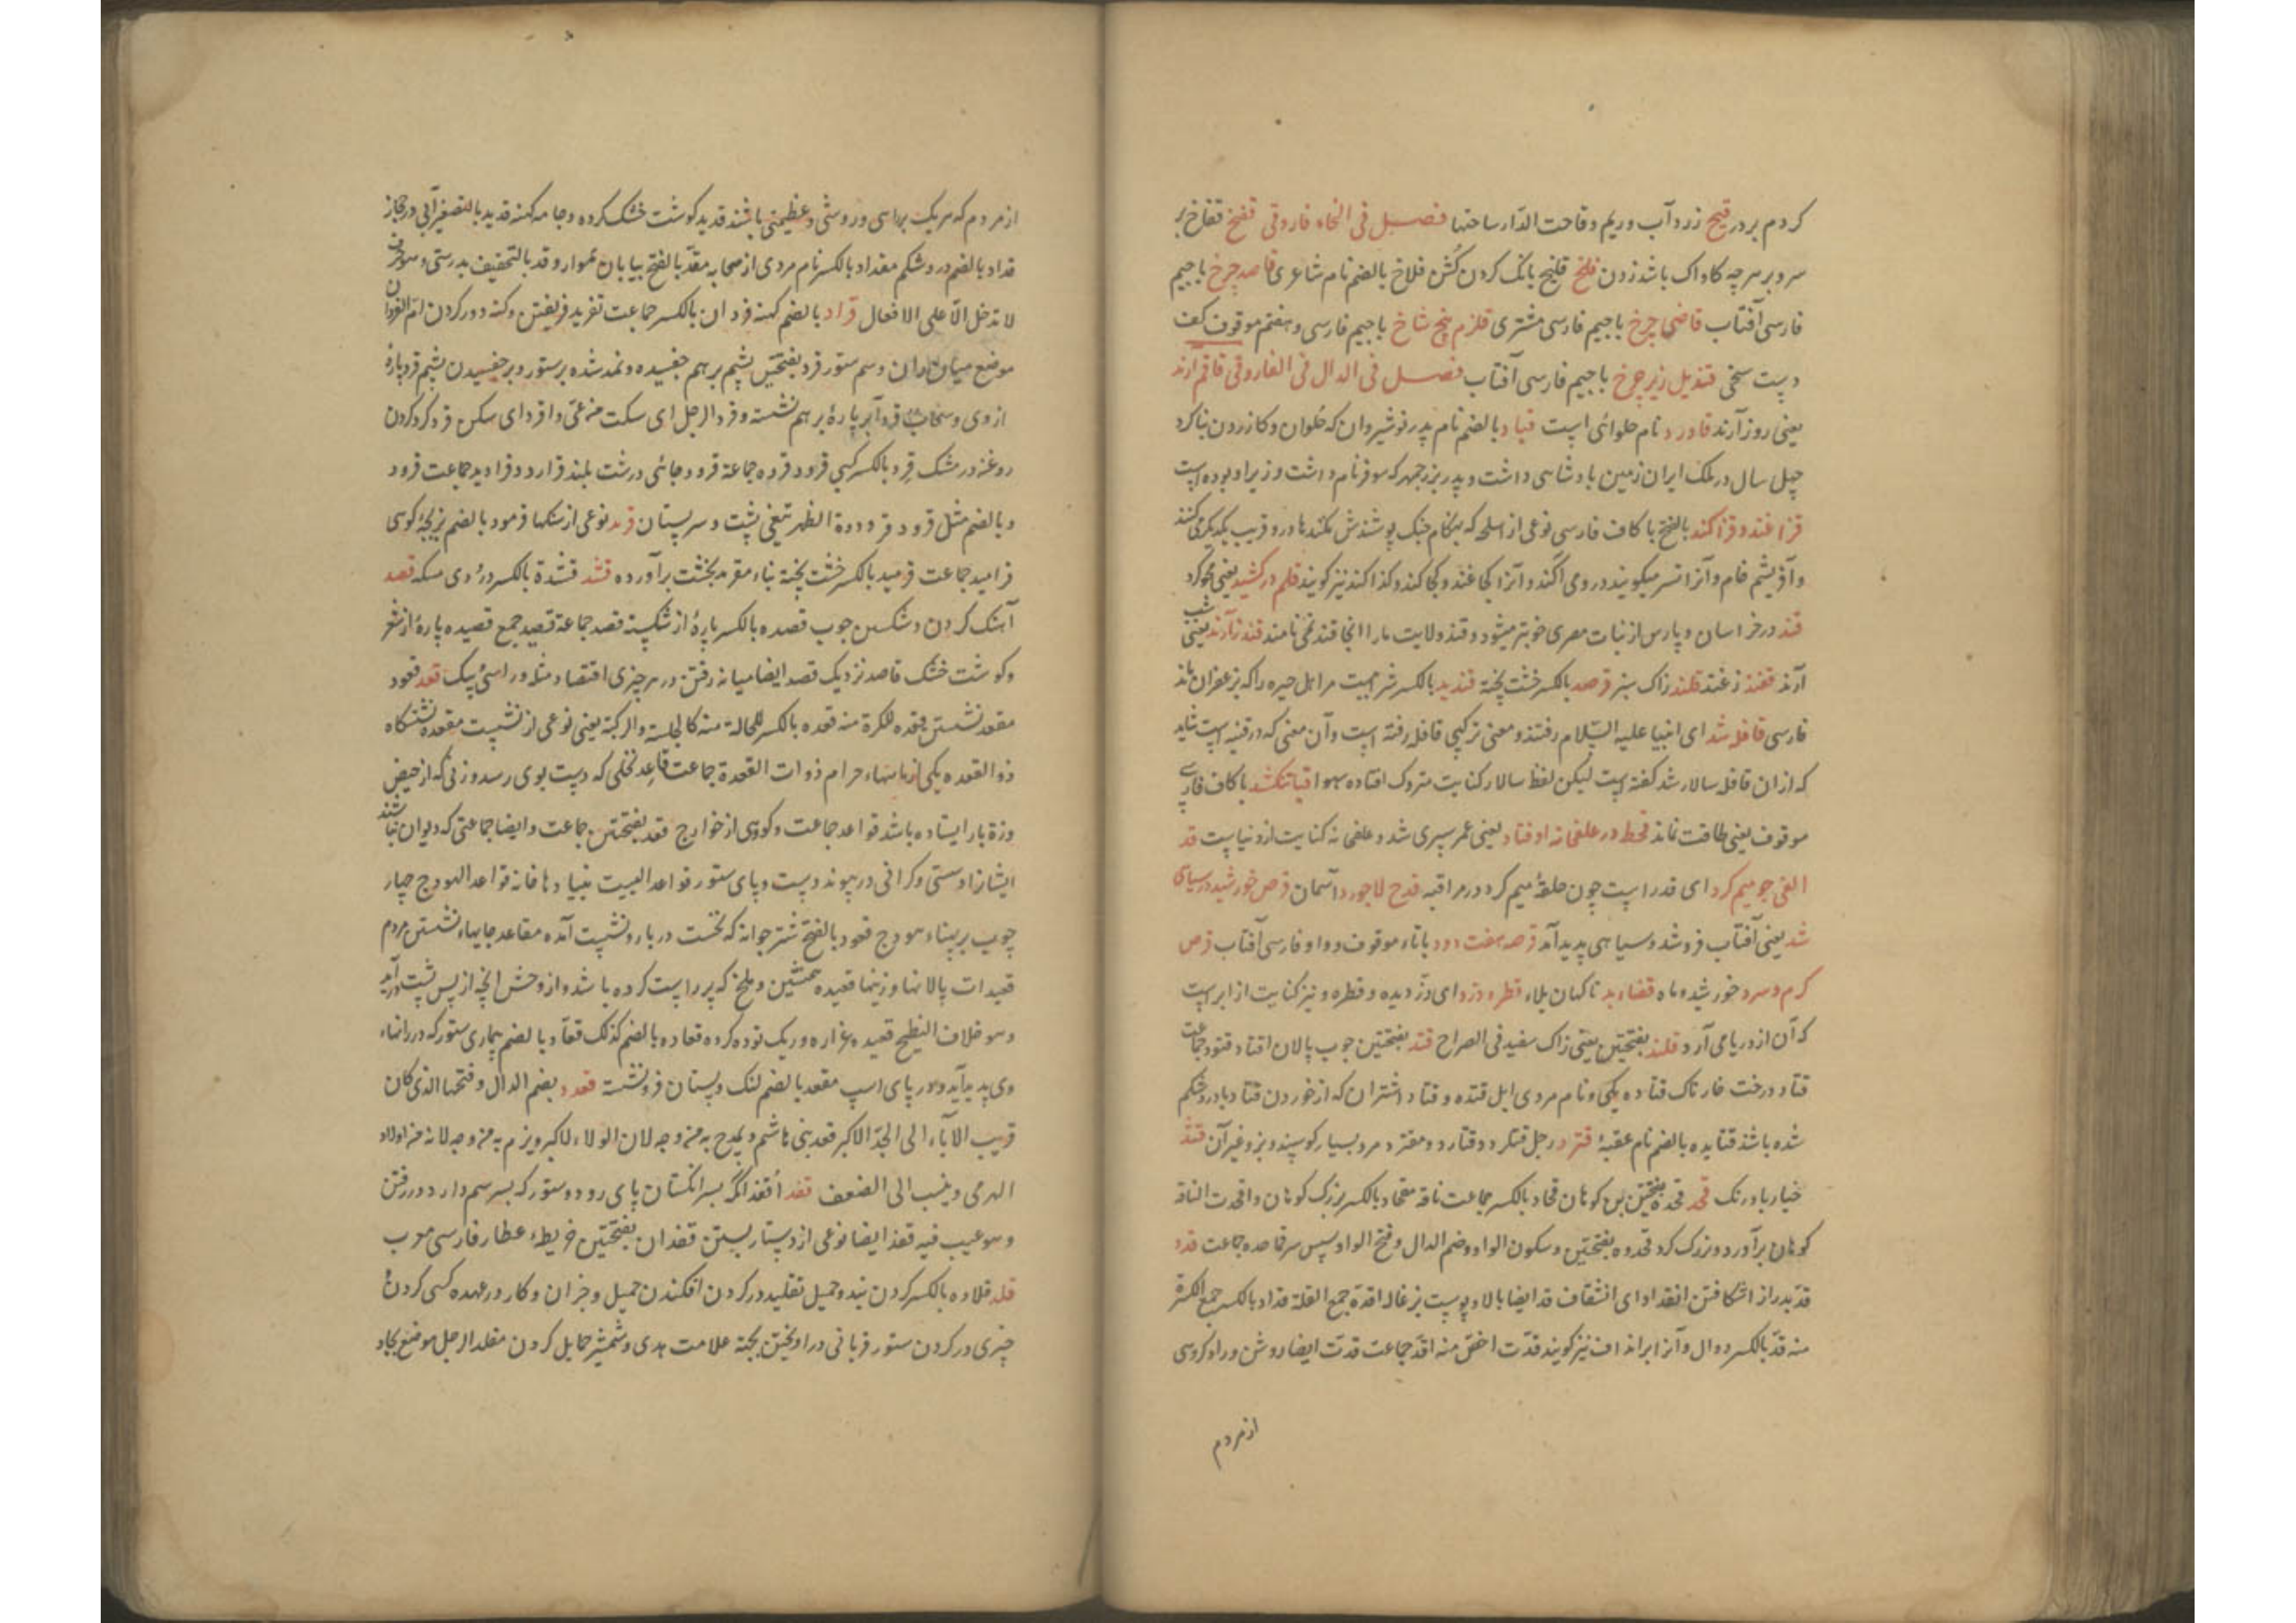 کردم بردر قیح زرد آب و ریم و قاحت الدار ساحتها فصل فی الخاء فاروقی قفخ قفاخ بر
سر و بر هر چه کاواک باشد زدن قلخ قلیخ بانگ کردن کشن قلاخ بالضم نام شاعری قاصد چرخ با جیم
فارسی آفتاب قاضی چرخ با جیم فارسی مشتری قلزم پنج شاخ با جیم فارسی و هفتم موقوف کف
دست سخی قندیل زیر چرخ با جیم فارسی آفتاب فصل فی الدال فی الفاروقی قاقم ارند
یعنی روز آرند قاورد نام حلوائی است قباد بالضم نام پدر نوشیروان که حلوان و کازرون بنا کرد
چهل سال در ملک ایران زمین بادشاهی داشت و پدر بزرجمهر که سوفر نام داشت وزیر او بوده است
قزاغند و قزاکند بالفتح با کاف فارسی نوعی از اسلحه که هنگام جنک پوشندش
قند در خراسان و پارس از نبات مصری خوبتر میشود و قند ولایت مارا انجا قند نمی نامند قند ز آرند یعنی شب
آرند قفند زغند قلند زاک سبز قرمد بالکسر خشت پخته قندید بالکسر شرابیست مر اهل حیره را که بزعفران ماند
فارسی قافله شد ای انبیا علیه السلام رفتند و معنی ترکیبی قافله رفته است و آن معنی که در قنیه است شاید
که از ان قافله سالار شد گفته است لیکن لفظ سالار کنایت متروک افتاده سهوا قبا تنک شد با کاف فارسی
موقوف یعنی طاقت نماند قحط در علفخانه اوفتاد یعنی عمر سپری شد و علفخانه کنایت از دنیاست قد
الفی جو میم کرد ای قد راست چون حلقه میم کرد در مراقبه قدح لاجورد آسمان قرص خورشید در سیاهی
شد یعنی آفتاب فروشد و سیاهی پدید آمد قرصه هفت دود با تاء موقوف و واو فارسی آفتاب قرص
کرم و سرد خورشید و ماه قضاء بد ناکهان بلاء قطره دزد ای دزدیده و قطره و نیز کنایت از ابر است
که آن از دریا می آرد قلند بفتحتین یعنی زاک سفید فی الصراح قتد بفتحتین چوب پالان اقتاد قتود جماعت
قتاد درخت خارناک قتاده یکی و نام مردی ابل قتده و قتاد اشتران که از خوردن قتاد دبا در شکم
شده باشد قتایده بالضم نام عقبه قثرد رجل قثرد و قثارد و مقثرد مرد بسیار کوسپند و بز و غیر آن قثد
خیار بادرنک قحد قحده بفتحتین بن کوهان قحاد بالکسر جماعت ناقة مقحاد بالکسر بزرک کوهان و اقحدت الناقة
کوهان برآورد و بزرک کرد قمحدوه بفتحتین و سکون الواو و ضم الدال و فتح الواو سپس سر قماحده جماعت قدد
قد بدراز اشکافتن انقداد ای انشقاق قد ایضا بالا و پوست بزغاله اقده جمع القلة قداد بالکسر جمع الکثرة
منه قد بالکسر دوال و آنرا براندان نیز گویند قدت اخص منه اقد جماعت قدت ایضا روش و راه و کروهی
از مردم
از مردم که هر یک براهی و روشی و عظیمتی باشند قدید کوشت خشک کرده و جامه کهنه قدید بالتصغیر آبی در حجاز
قداد بالضم درد شکم مقداد بالکسر نام مردی از صحابه مقد بالفتح بیابان هموار و قد بالتخفیف بدرستی و هو حرف
لا تدخل الا علی الافعال قراد بالضم کنه قردان بالکسر جماعت تقرید فریفتن و کنه دور کردن ام القردان
موضع میان ران و سم ستور قرد بفتحتین پشم بر هم جفسیده و نمد شده بر ستور و بر جفسیدن پشم قرد پاره
از وی و سحاب قرد ابر پاره بر هم نشسته و قرد الرجل ای سکت من عی و اقرد ای سکن قرد کرد کردن
روغن در مشک قرد بالکسر کپی قرود قرده جماعة قردد جائی درشت بلند قرادد و قرادید جماعت قردود
و بالضم مثل قردد قردودة الظهر تیغی پشت و سر پستان قرمد نوعی از سنکها قرمود بالضم بزبچه کوهی
قرامید جماعت قرمید بالکسر خشت پخته بناء مقرمد بخشت برآورده قشد قشدة بالکسر دردی مسکه قصد
آهنک کردن و شکستن چوب قصده بالکسر پاره از شکسته قصد جماعة قصید جمع قصیده پاره از شعر
و کوشت خشک قاصد نزدیک قصد ایضا میانه رفتن در هر چیزی اقتصاد مثله و راستی پیک قعد قعود
مقعد نشستن قعده للمرة منه قعده بالکسر للحالة منه کالجلسة والرکبة یعنی نوعی از نشست مقعده نشستکاه
ذوالقعده یکی از ماههاء حرام ذوات القعدة جماعت قاعد نخلی که دست بوی رسد و زنی که از حیض
و زه بار ایستاده باشد قواعد جماعت و کروهی از خوارج قعد بفتحتین جماعت و ایضا جماعتی که دیوان نباشند
ایشانرا و سستی و کرانی در پیوند دست و پای ستور قواعد البیت بنیادها خانه قواعد الهودج چهار
چوب بر پهناء هودج قعود بالفتح شتر جوانه که نخست در بار و نشست آمده مقاعد جایهاء نشستن مردم
قعیدات پالانها و زینها قعیده همنشین و ملخ که پر راست کرده باشد و از وحش انچه از پس پشت درآید
و هو خلاف النطیح قعیده غراره و ریک توده کرده قعادة بالضم کذلک قعاد بالضم بیماری ستور که در رانهاء
وی پدید آید و در پای اسپ مقعد بالضم لنک و پستان فرونشسته قعدد بضم الدال و فتحها الذی کان
قریب الآباء الی الجد الاکبر قعد بنی هاشم و یمدح به من وجه لان الولاء للاکبر و یذم به من وجه لانه من اولاد
الهرمی و ینسب الی الضعف قفد اقفد انکه بسر انکستان پای رود و ستور که بسر سم دارد در رفتن
و هو عیب فیه قفد ایضا نوعی از دستار بستن قفدان بفتحتین خریطه عطار فارسی معرب
قلد قلاده بالکسر کردن بند و حمیل تقلید در کردن افکندن حمیل و جز آن و کار در عهده کسی کردن
چیزی در کردن ستور قربانی در آویختن بجهة علامت هدی و شمشیر حمایل کردن مقلد الرجل موضع نجاد